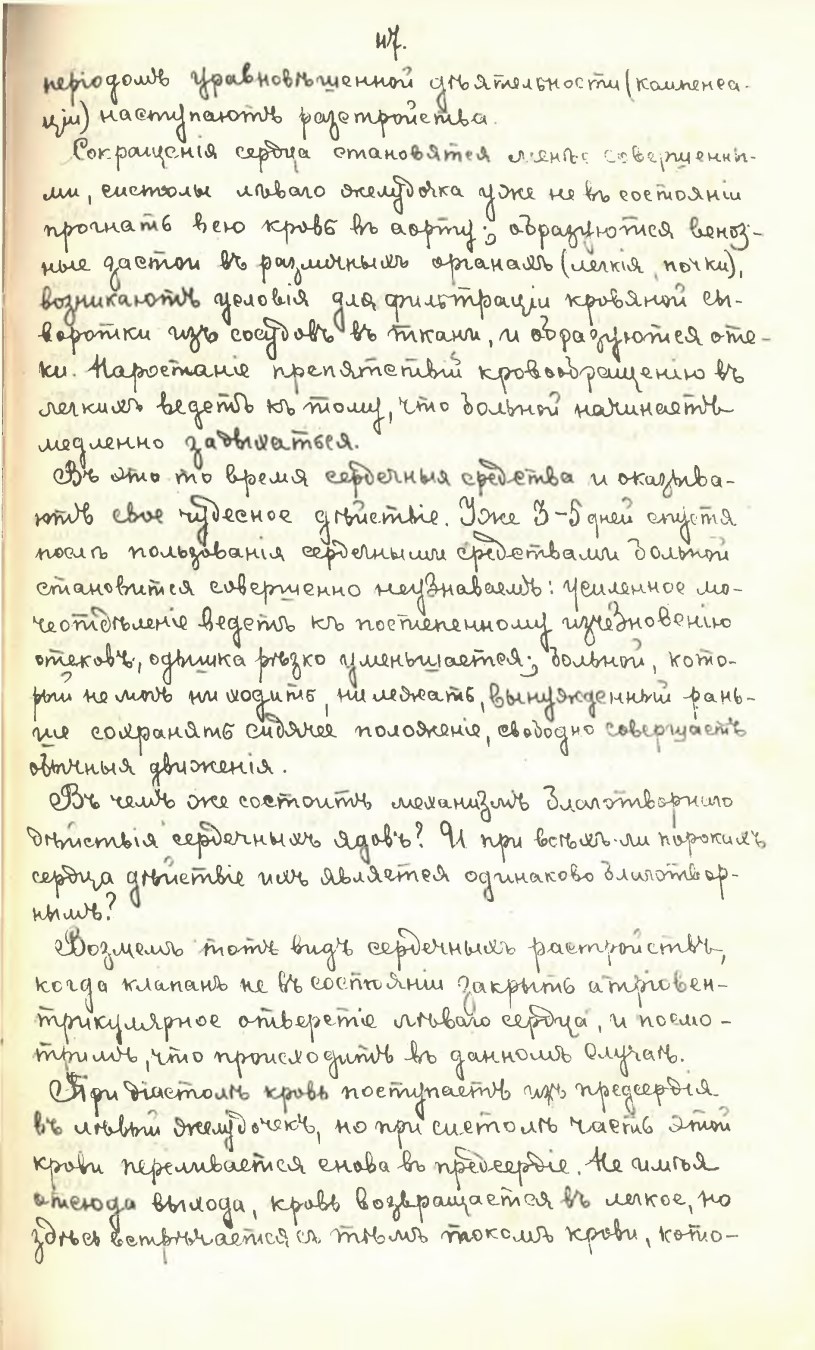 47.
періодомъ уравновѣшенной дѣятельности (компенса-
ціи) наступаютъ разстройства.
Сокращенія сердца становятся менѣе совершенны-
ми, систолы лѣваго желудочка уже не въ состояніи
прогнать всю кровь въ аорту; образуются веноз-
ные застои въ различныхъ органахъ (легкія, почки),
возникаютъ условія для фильтраціи кровяной сы-
воротки изъ сосудовъ въ ткани, и образуются оте-
ки. Наростаніе препятствій кровообращенію въ
легкихъ ведетъ къ тому, что больной начинаетъ
медленно задыхаться.
Въ это то время сердечныя средства и оказыва-
ютъ свое чудесное дѣйствіе. Уже 3-5 дней спустя
послѣ пользованія сердечными средствами больной
становится совершенно неузнаваемъ: усиленное мо-
чеотдѣленіе ведетъ къ постепенному изчезновенію
отековъ, одышка рѣзко уменьшается; больной, кото-
рый не могъ ни ходить, ни лежать, вынужденный рань-
ше сохранять сидячее положеніе, свободно совершаетъ
обычныя движенія.
Въ чемъ же состоитъ механизмъ благотворнаго
дѣйствія сердечныхъ ядовъ? И при всѣхъ-ли порокахъ
сердца дѣйствіе ихъ является одинаково благотвор-
нымъ?
Возмемъ тотъ видъ сердечныхъ растройствъ,
когда клапанъ не въ состояніи закрыть атріовен-
трикулярное отверстіе лѣваго сердца, и посмо-
тримъ, что происходитъ въ данномъ случаѣ.
При діастолѣ кровь поступаетъ изъ предсердія
въ лѣвый желудочекъ, но при систолѣ часть этой
крови переливается снова въ предсердіе. Не имѣя
отсюда выхода, кровь возвращается въ легкое, но
здѣсь встрѣчается съ тѣмъ токомъ крови, кото-